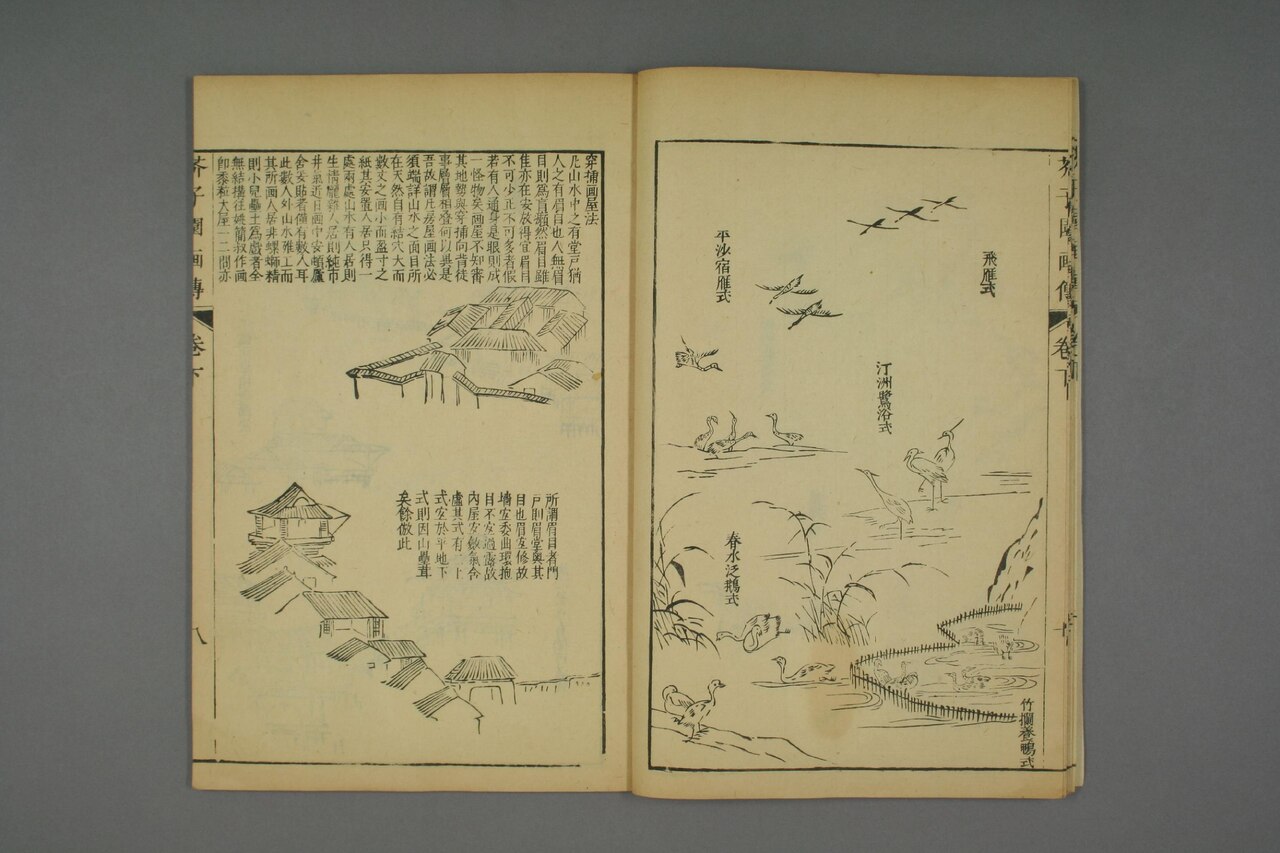 芥子園画傳
卷下
飛雁式
平沙宿雁式
汀洲鷺浴式
春水泛鵝式
竹攔養鴨式
穿插画屋法
凡山水中之有堂戶猶
人之有眉目也人無眉
目則為盲癩然眉目雖
佳亦在安放得宜眉目
不可少正不可多者假
若有人通身是眼則成
一怪物矣画屋不知審
其地勢與穿插向背徒
事層層相疊何以異是
吾故謂凡房屋画法必
須端詳山水之面目所
在天然自有結穴大而
數丈之画小而盈寸之
紙其安置人居只得一
處兩處山水有人居則
生情龐雜人居則純市
井氣近日画中安頓蘆
舍妥貼者僅有數人耳
此數人外山水雅工而
其所画人居非螺螄精
則小兒壘土為戲者全
無結搆徃姚簡叔作画
卽黍粒大屋一二間亦
所謂眉目者門
戶則眉堂奧其
目也眉宜修故
墻宜委曲環抱
目不宜過露故
內屋宜斂氣含
虛其式有二上
式宜於平地下
式則因山壘葺
矣餘倣此
芥子園画傳
卷下
八